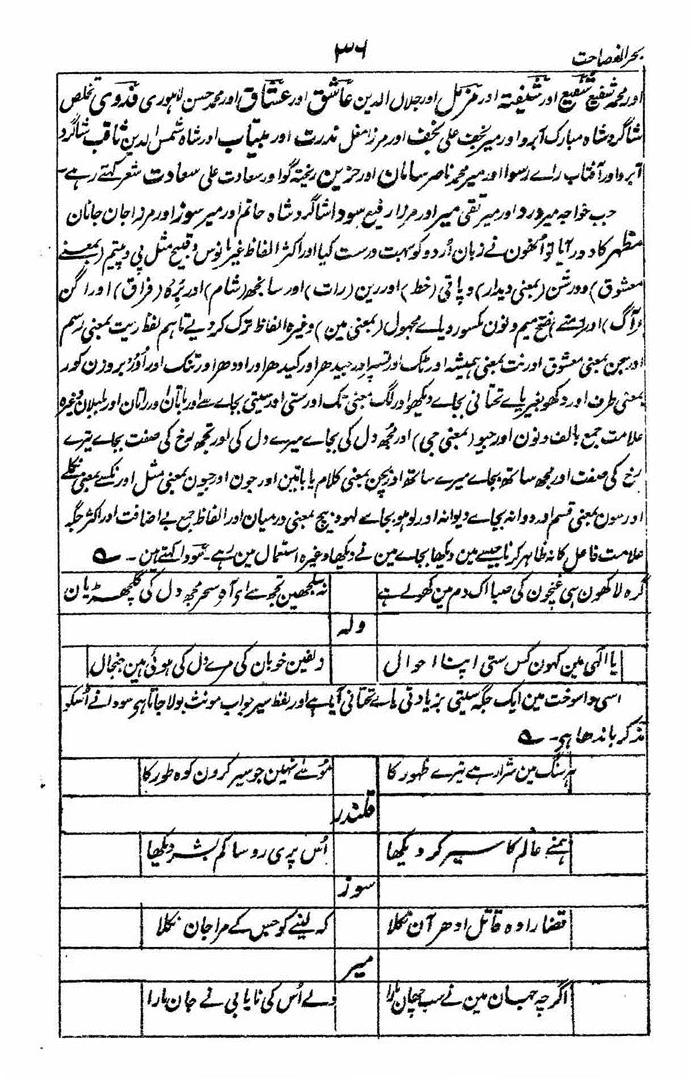 بحر الفصاحت
۳۶
اور محمد شفیع شفیع اور شیفتہ اور مزمل اور جلال الدین عاشق اور عشاق اور محمد حسن لاہوری فدوی تخلص
شاگرد شاہ مبارک آبرو اور میر نجف علی نجف اور مرزا مغل ندرت اور بیتاب اور شاہ شمس الدین ثاقب شاگرد
آبرو اور آفتاب راے رسوا اور میر محمد ناصر سامان اور حزین ریختہ گو اور سعادت علی سعادت شعر کہتے رہے۔
جب خواجہ میر درد اور میر تقی میر اور مرزا رفیع سودا شاگرد شاہ حاتم اور میر سوز اور مرزا جان جانان
مظہر کا دور آیا تو انھون نے زبان اُردو کو بہت درست کیا اور اکثر الفاظ غیر مانوس و قبیح مثل پی و پیتم (بمعنے
معشوق) و درشن (بمعنی دیدار) و پاتی (خط) اور رین (رات) اور سانجھ (شام) اور برہ (فراق) اور اگن
(آگ) اور منے بفتح میم و نون کسور و یاے مجہول (بمعنی مین) وغیرہ الفاظ ترک کر دیے تاہم لفظ ریت بمعنی رسم
اور سجن بمعنی معشوق اور نت بمعنی ہمیشہ اور ٹک اور تسپر اور جیدھر اور کیدھر اور اودھر اور تنک اور اُور بروزن کور
بمعنی طرف اور دکھو بغیر یاے تحتانی بجاے دیکھو اور لگ بمعنی تک اور ستی اور سیتی بجاے سے اور باتان اور راتان اور بلبلان وغیرہ
علامت جمع بالف و نون اور جیو (بمعنی جی) اور مجھ دل کی بجاے میرے دل کی اور تجھ رخ کی صفت بجاے تیرے
رخ کی صفت اور مجھ ساتھ بجاے میرے ساتھ اور بچن بمعنی کلام یا باتین اور جون اور جیون بمعنی مثل اور نکسے بمعنی نکلے
اور سون بمعنی قسم اور دوانہ بجاے دیوانہ اور لوہو بجاے لہو و بیچ بمعنی درمیان اور الفاظ جمع بے اضافت اور اکثر جگہ
علامت فاعل کا نہ ظاہر کرنا جیسے مین دیکھا بجاے مین نے دیکھا وغیرہ استعمال مین رہے۔ سودا کہتے ہین۔
گرہ لاکھون ہی غنچون کی صبا اک دم مین کھولے ہے نہ سلجھین تجھ سے اے آہ سحر مجھ دل کی گلجھڑیان
ولہ
یا الٰہی مین کہون کس ستی اپنا احوال زلفین خوبان کی مرے دل کی ہوئی ہین جنجال
اسی واسوخت مین ایک جگہ سیتی بزیادتی یاے تحتانی آیا ہے اور لفظ سیر جواب مونث بولا جاتا ہے سودا نے اُسکو
مذکر باندھا ہے۔
ہر سنگ مین شرار ہے تیرے ظہور کا موسٰے نہین جو سیر کرون کوہ طور کا
قلندر
ہمنے عالم کا سیر کر دیکھا اُس پری رو سا کم بشر دیکھا
سوز
قضارا وہ قاتل ادھر آن نکلا کہ لینے کو جس کے مرا جان نکلا
میر
اگرچہ جہان مین نے سب چھان مارا ولے اُس کی نایابی نے جان مارا